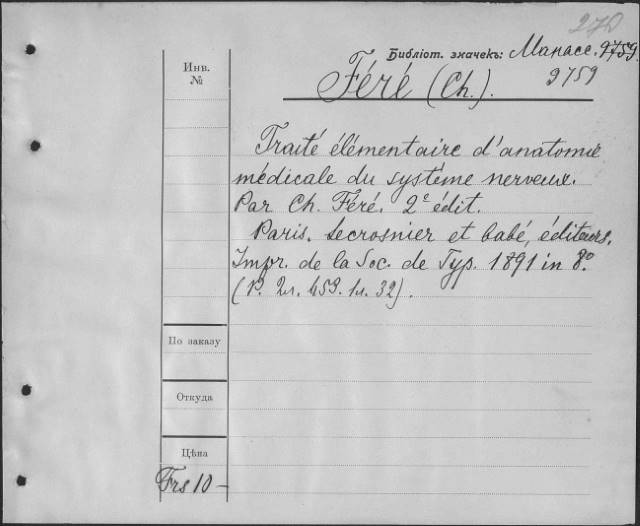 270
Библіот. значекъ: Манасс. 9759.
9759
Инв.
№
Féré (Ch.).
Traité élémentaire d'anatomie
médicale du système nerveux.
Par Ch. Féré. 2e édit.
Paris. Lecrosnier et babé, éditeurs.
Impr. de la Soc. de Typ. 1891 in 8o.
(P. 2л. 459. 1л. 32).
По заказу
Откуда
Цѣна
Frs 10 –